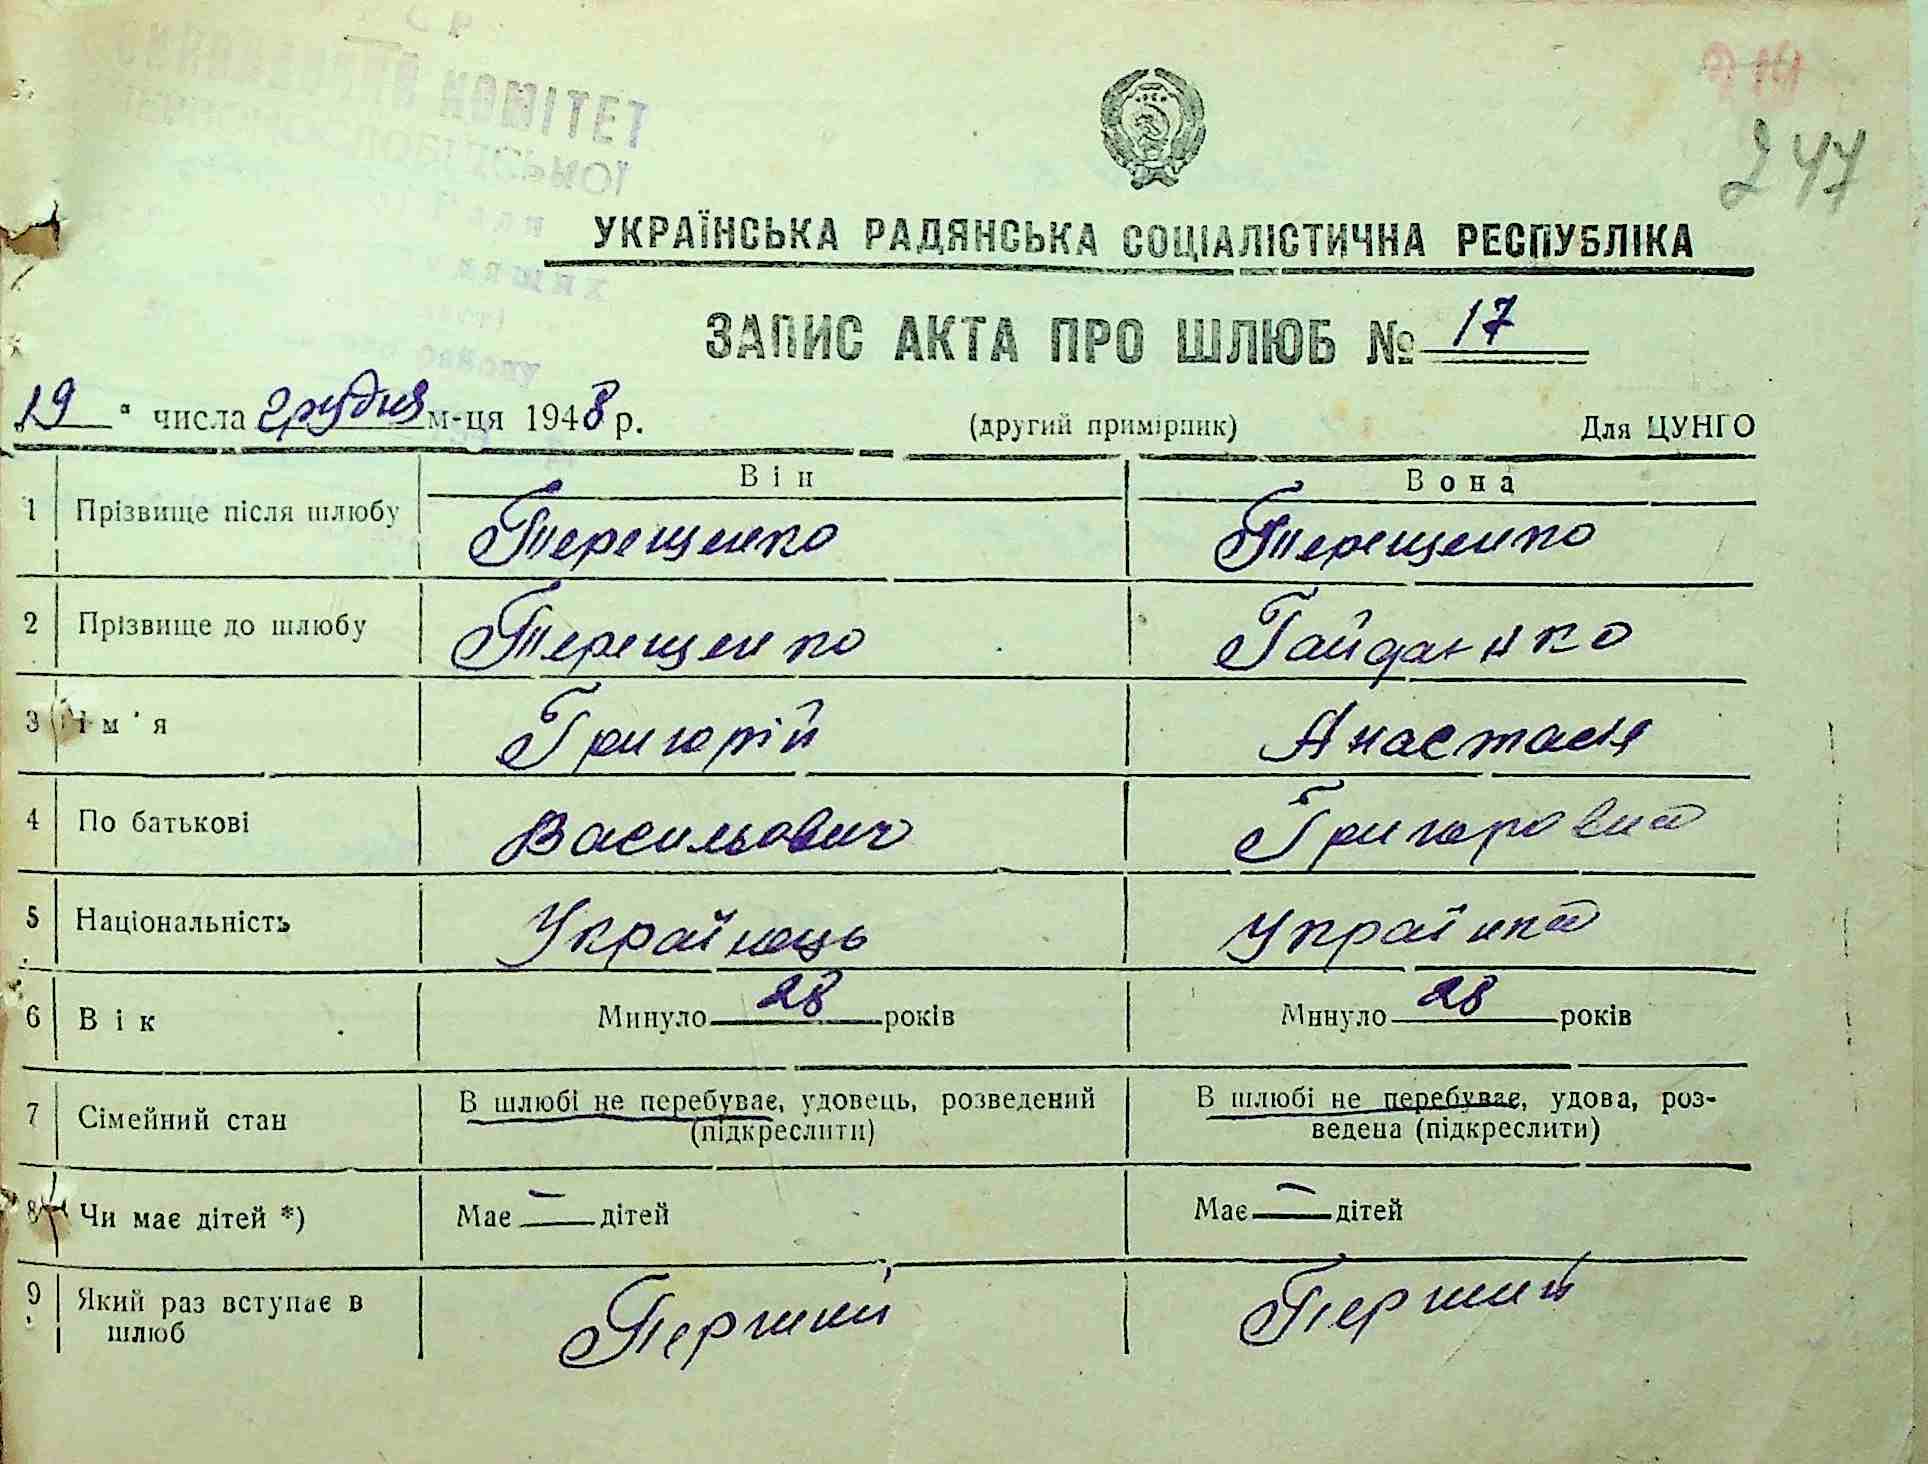 КОМІТЕТ
247
УКРАЇНСЬКА РАДЯНСЬКА СОЦІАЛІСТИЧНА РЕСПУБЛІКА
ЗАПИС АКТА ПРО ШЛЮБ № 17
„19“ числа Грудня м-ця 1948 р. (другий примірник) Для ЦУНГО
Він Вона
1 Прізвище після шлюбу Терещенко Терещенко
2 Прізвище до шлюбу Терещенко Гайданко
3 Ім'я Григорій Анастасія
4 По батькові Васильович Григоровна
5 Національність Українець Українка
6 Вік Минуло 28 років Минуло 28 років
7 Сімейний стан В шлюбі не перебуває, удовець, розведений (підкреслити) В шлюбі не перебуває, удова, роз-
ведена (підкреслити)
8 Чи має дітей *) Має — дітей Має — дітей
9 Який раз вступає в шлюб Перший Перший